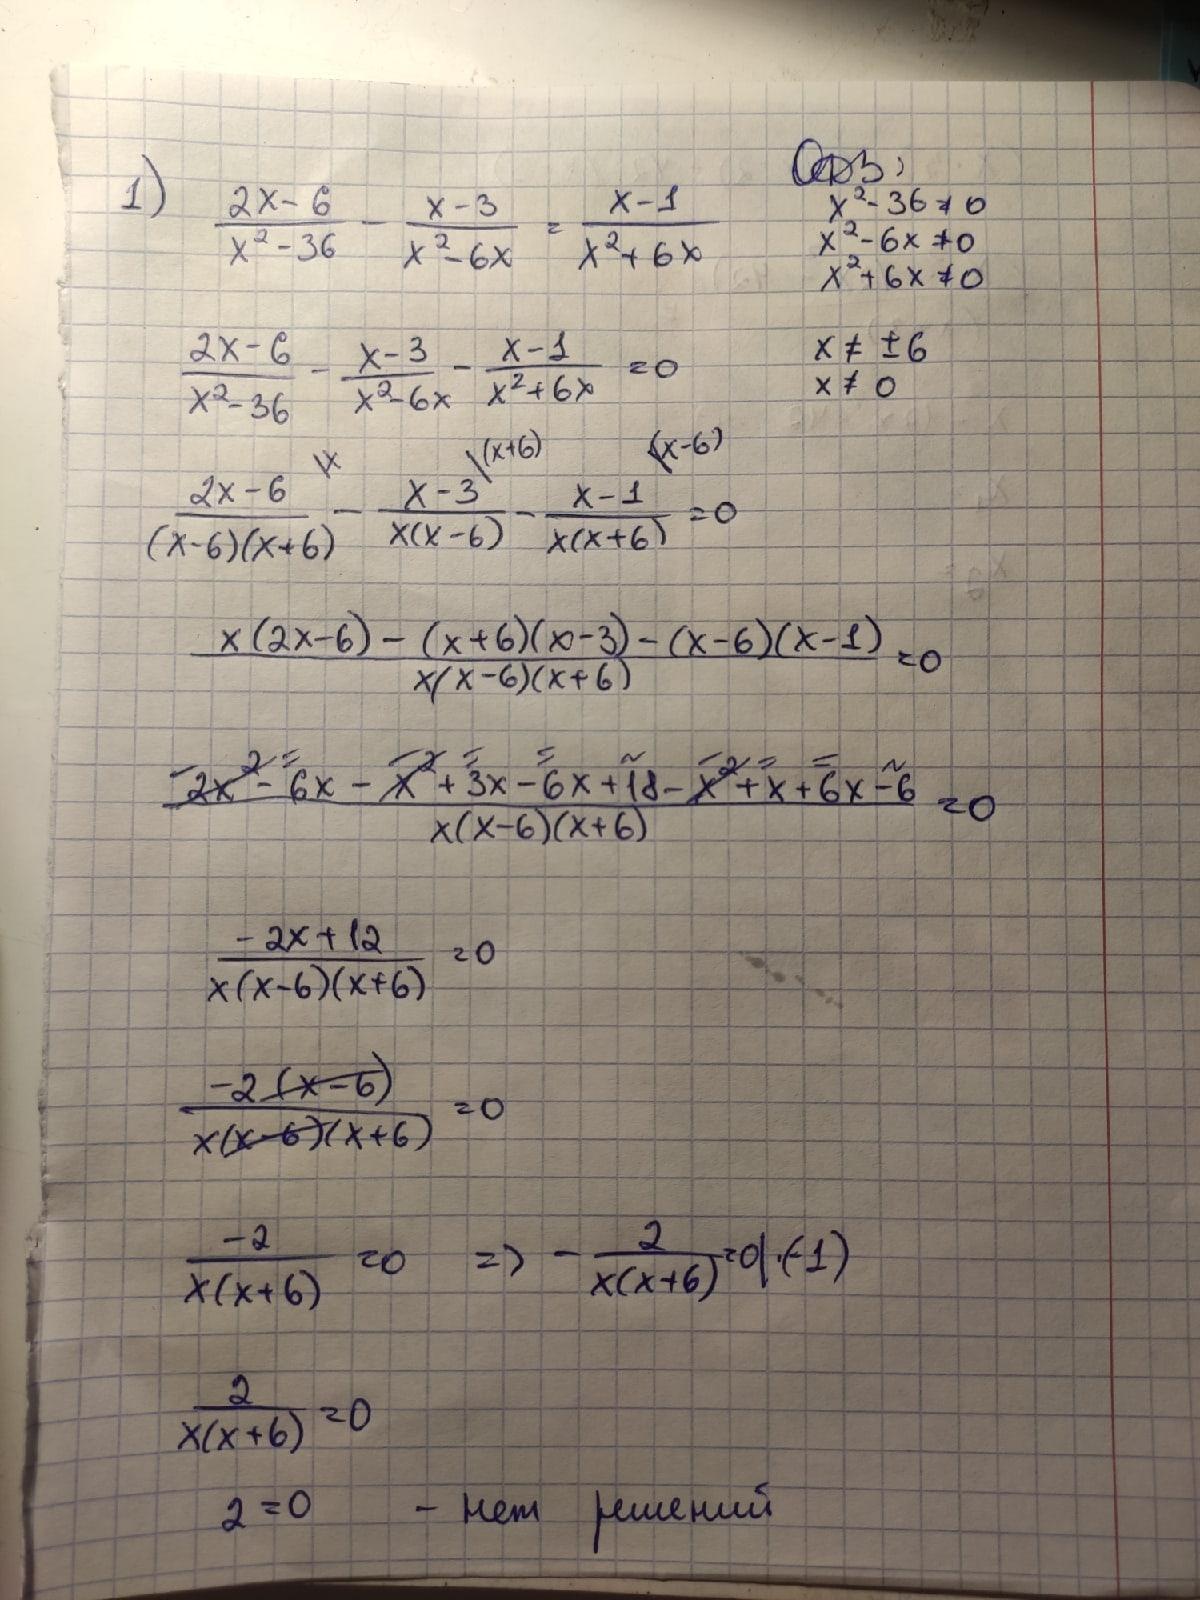 1) (2x-6)/(x²-36) - (x-3)/(x²-6x) = (x-1)/(x²+6x)
ОДЗ:
x²-36≠0
x²-6x≠0
x²+6x≠0
x≠±6
x≠0
(2x-6)/(x²-36) - (x-3)/(x²-6x) - (x-1)/(x²+6x) =0
(2x-6)/((x-6)(x+6)) \x - (x-3)/(x(x-6)) \(x+6) - (x-1)/(x(x+6)) \(x-6) =0
(x(2x-6)-(x+6)(x-3)-(x-6)(x-1))/(x(x-6)(x+6)) =0
(2x²-6x-x²+3x-6x+18-x²+x+6x-6)/(x(x-6)(x+6)) =0
(-2x+12)/(x(x-6)(x+6)) =0
(-2(x-6))/(x(x-6)(x+6)) =0
(-2)/(x(x+6)) =0 => - 2/(x(x+6)) =0 |·(-1)
2/(x(x+6)) =0
2=0 - нет решений